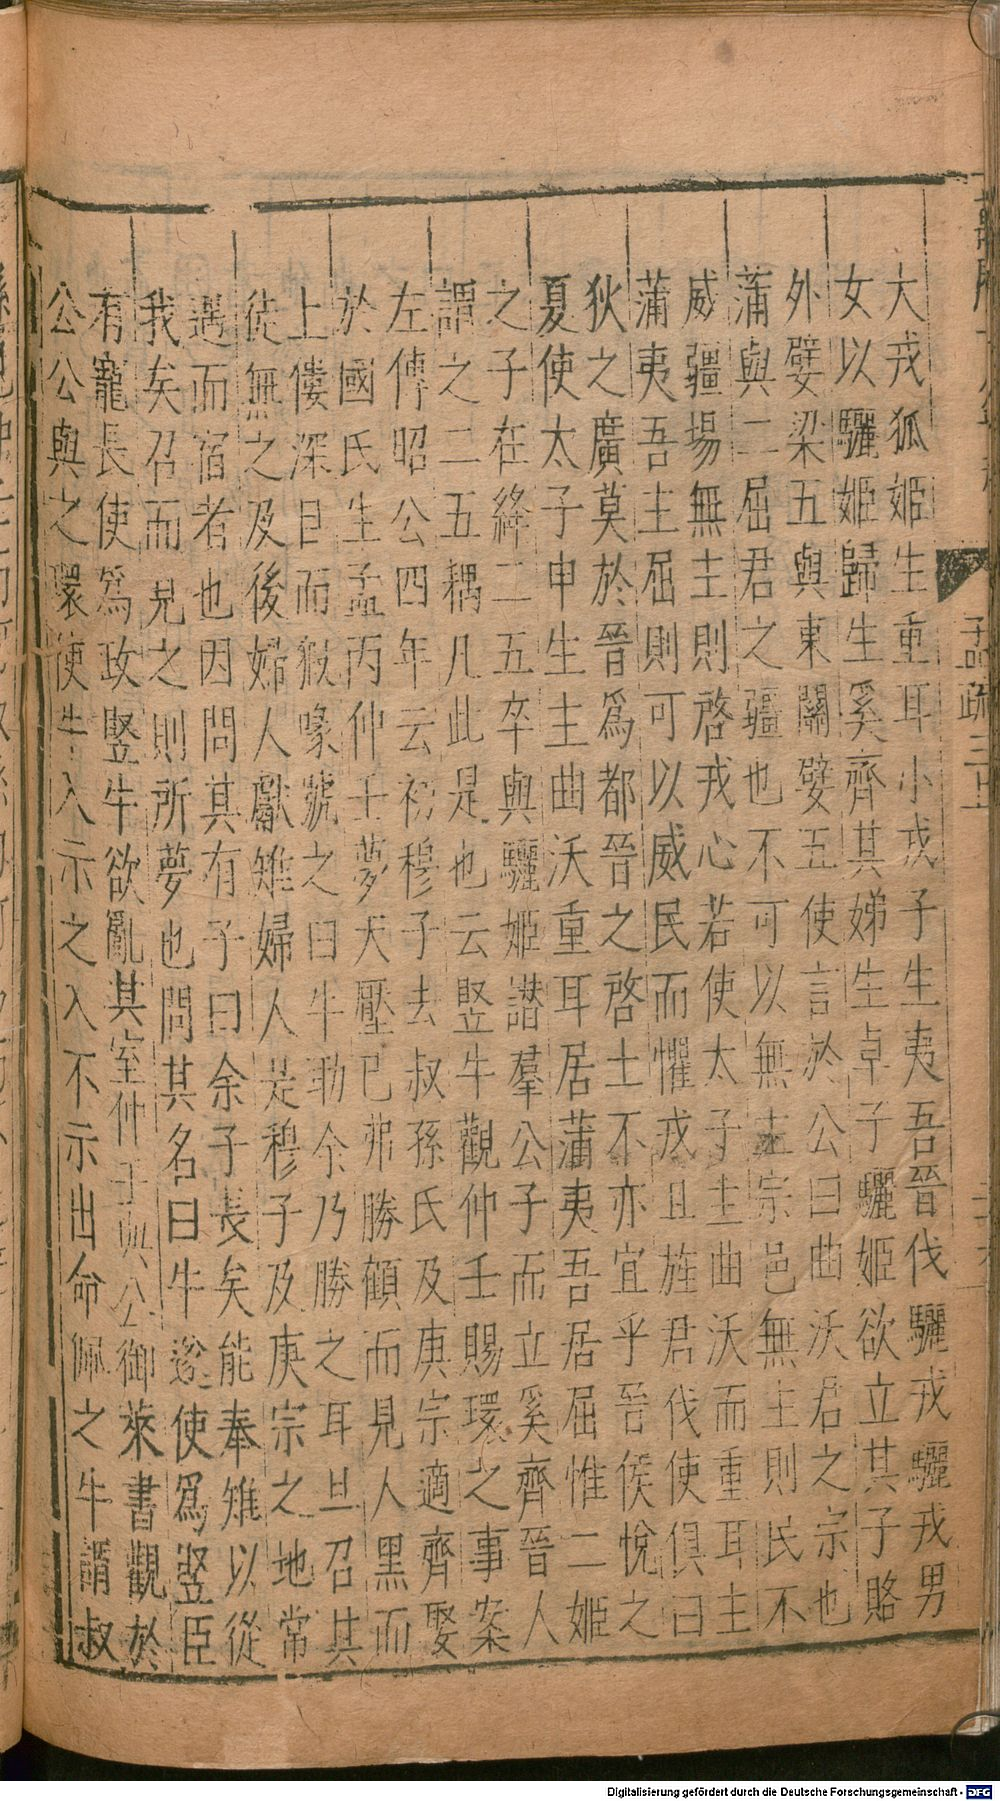 孟疏三上
大戎狐姬生重耳小戎子生夷吾晉伐驪戎驪戎男
女以驪姬歸生奚齊其娣生卓子驪姬欲立其子賂
外嬖梁五與東關嬖五使言於公曰曲沃君之宗也
蒲與二屈君之疆也不可以無主宗邑無主則民不
威疆場無主則啓戎心若使太子主曲沃而重耳主
蒲夷吾主屈則可以威民而懼戎且旌君伐使俱曰
狄之廣莫於晉爲都晉之啓土不亦宜乎晉侯悅之
夏使太子申生主曲沃重耳居蒲夷吾居屈惟二姬
之子在絳二五卒與驪姬譖羣公子而立奚齊晉人
謂之二五耦凡此是也云竪牛觀仲壬賜環之事案
左傳昭公四年云初穆子去叔孫氏及庚宗適齊娶
於國氏生孟丙仲壬夢天壓已弗勝顧而見人黑而
上僂深目而猳喙號之曰牛助余乃勝之耳旦召其
徒無之及後婦人獻雉婦人是穆子及庚宗之地常
遇而宿者也因問其有子曰余子長矣能奉雉以從
我矣召而見之則所夢也問其名曰牛遂使爲竪臣
有寵長使爲政竪牛欲亂其室仲壬與公御萊書觀於
公公與之環使牛入示之入不示出命佩之牛謂叔
Digitalisierung gefördert durch die Deutsche Forschungsgemeinschaft - DFG